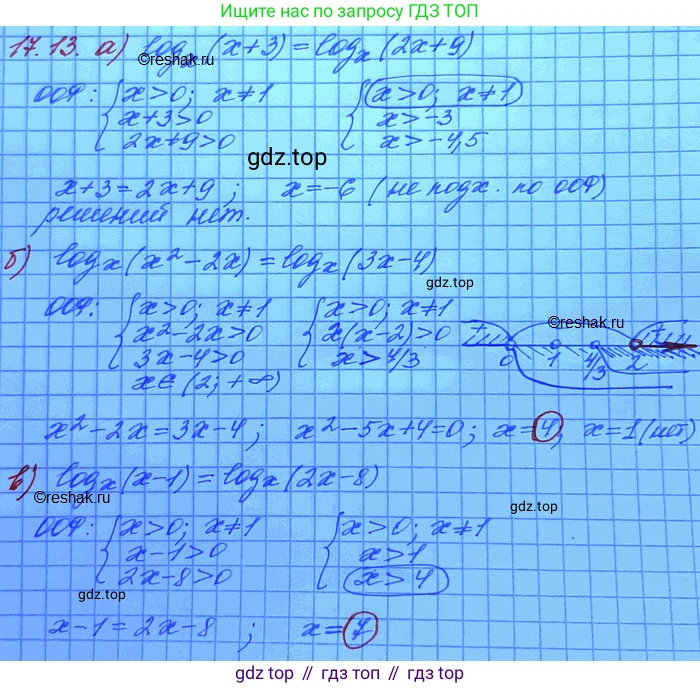 Ищите нас по запросу ГДЗ ТОП
17.13. а) log_x (x+3) = log_x (2x+9)
©reshak.ru
ООФ: { x>0; x≠1 { x>0; x≠1
x+3>0 x>-3
2x+9>0 x>-4,5
gdz.top
x+3=2x+9; x=-6 (не подх. по ООФ)
решений нет.
б) log_x (x²-2x) = log_x (3x-4)
gdz.top
ООФ: { x>0; x≠1 { x>0; x≠1
©reshak.ru
x²-2x>0 x(x-2)>0
3x-4>0 x>4/3
+ + 0 1 4/3 2
x∈(2; +∞)
x²-2x=3x-4; x²-5x+4=0; x=4, x=1 (нет)
в) log_x (x-1) = log_x (2x-8)
©reshak.ru
gdz.top
ООФ: { x>0; x≠1 { x>0; x≠1
x-1>0 x>1
2x-8>0 x>4
gdz.top
x-1=2x-8; x=7
gdz топ // гдз топ // gdz.top